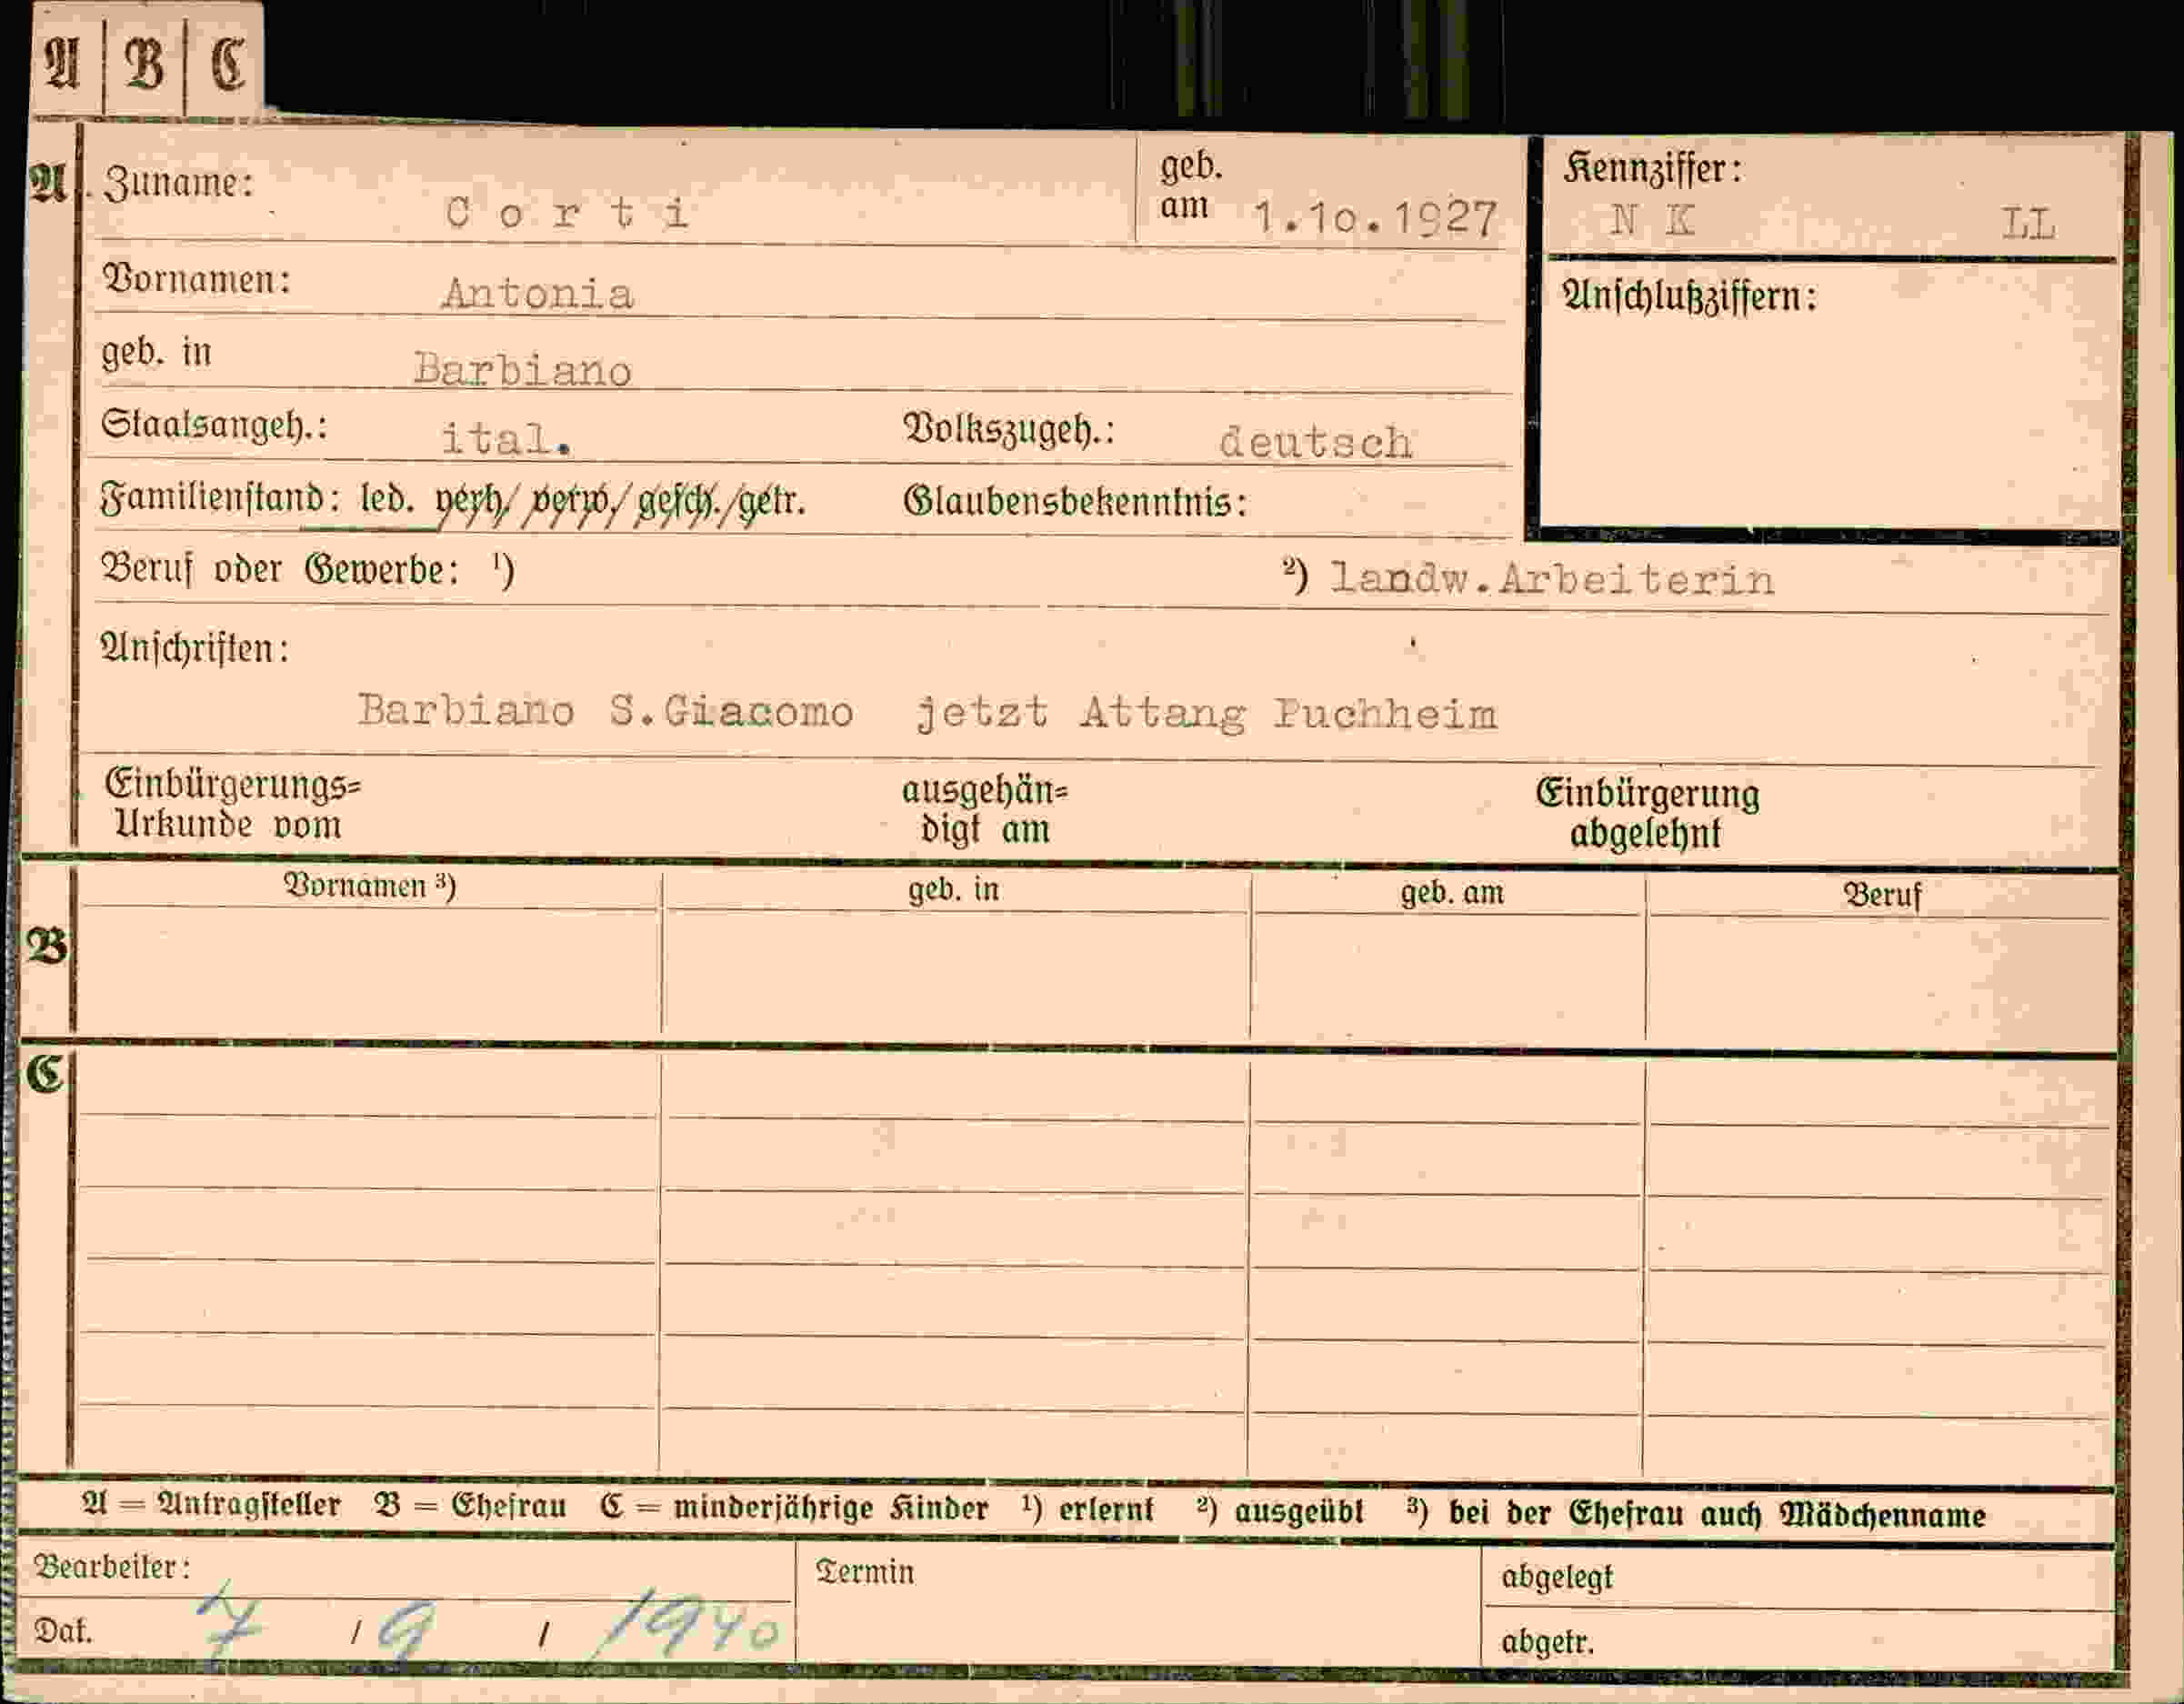 A | B | C
A. Zuname: Corti geb. am 1.10.1927 Kennziffer: N K LL
Vornamen: Antonia Anschlußziffern:
geb. in Barbiano
Staatsangeh.: ital. Volkszugeh.: deutsch
Familienstand: led. verh/ verw/ gesch./getr. Glaubensbekenntnis:
Beruf oder Gewerbe: ¹) ²) landw.Arbeiterin
Anschriften:
Barbiano S.Giacomo jetzt Attang Puchheim
Einbürgerungs= ausgehän= Einbürgerung
Urkunde vom digt am abgelehnt
Vornamen ³) geb. in geb. am Beruf
B
C
A = Antragsteller B = Ehefrau C = minderjährige Kinder ¹) erlernt ²) ausgeübt ³) bei der Ehefrau auch Mädchenname
Bearbeiter: Termin abgelegt
Dat. 7 / 9 / 1940 abgetr.